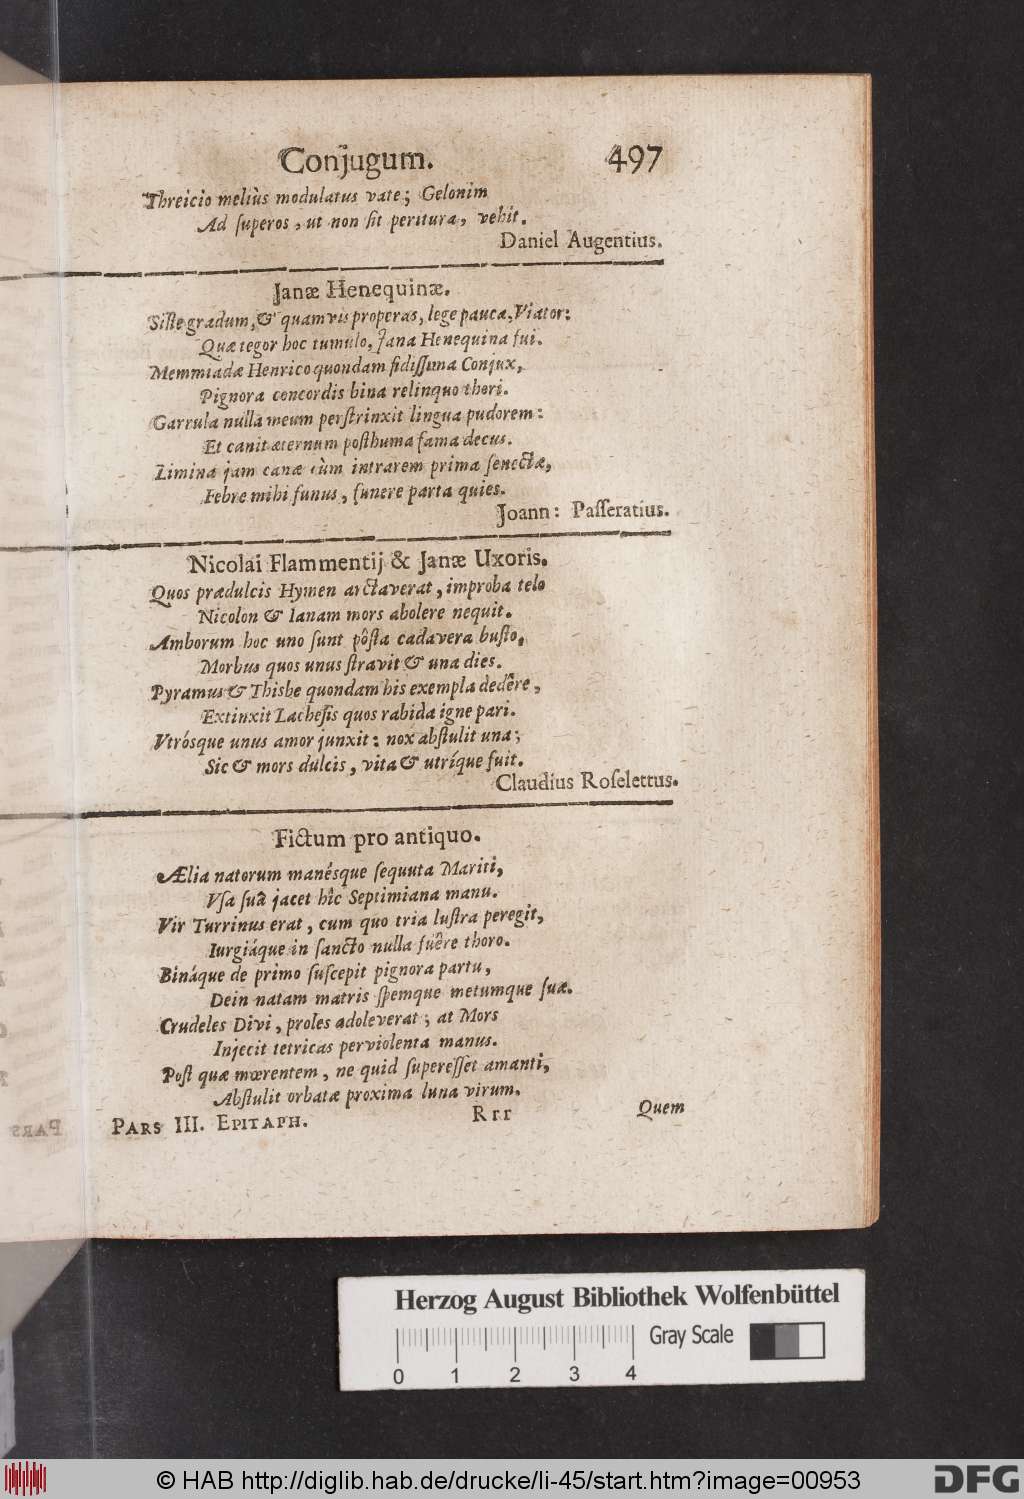 Conjugum. 497
Threicio meliùs modulatus vate; Gelonim
Ad ſuperos, ut non ſit peritura, vehit.
Daniel Augentius.
Janæ Henequinæ.
Siſte gradum, & quamvis properas, lege pauca, Viator:
Quæ tegor hoc tumulo, Jana Henequina fui.
Memmiadæ Henrico quondam fidiſſima Conjux,
Pignora concordis bina relinquo thori.
Garrula nulla meum perſtrinxit lingua pudorem:
Et canit æternum poſthuma fama decus.
Limina jam canæ cùm intrarem prima ſenectæ,
Febre mihi funus, funere parta quies.
Joann: Paſſeratius.
Nicolai Flammentij & Janæ Uxoris.
Quos prædulcis Hymen arctaverat, improba telo
Nicolon & Ianam mors abolere nequit.
Amborum hoc uno ſunt pôſta cadavera buſto,
Morbus quos unus ſtravit & una dies.
Pyramus & Thisbe quondam his exempla dedêre,
Extinxit Lacheſis quos rabida igne pari.
Vtrósque unus amor junxit: nox abſtulit una;
Sic & mors dulcis, vita & utríque fuit.
Claudius Roſelettus.
Fictum pro antiquo.
Ælia natorum manésque ſequuta Mariti,
Vſa ſuâ jacet hîc Septimiana manu.
Vir Turrinus erat, cum quo tria luſtra peregit,
Iurgiáque in ſancto nulla fuêre thoro.
Bináque de primo ſuſcepit pignora partu,
Dein natam matris ſpemque metumque ſuæ.
Crudeles Divi, proles adoleverat; at Mors
Injecit tetricas perviolenta manus.
Poſt quæ mœrentem, ne quid ſupereſſet amanti,
Abſtulit orbatæ proxima luna virum.
PARS III. EPITAPH. Rrr Quem
Herzog August Bibliothek Wolfenbüttel
Gray Scale
0 1 2 3 4
© HAB http://diglib.hab.de/drucke/li-45/start.htm?image=00953
DFG